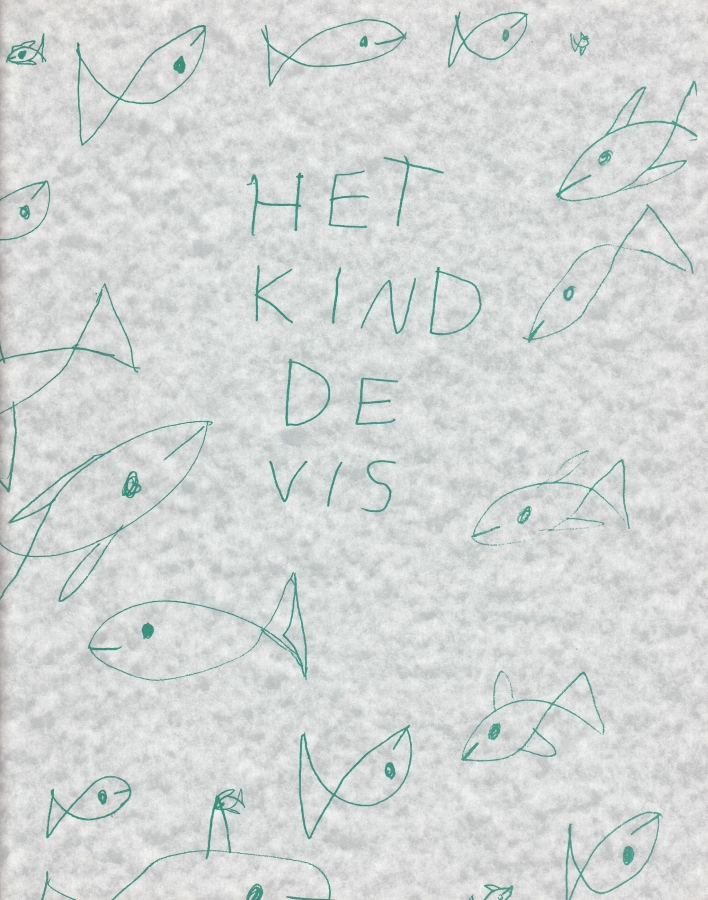 HET
KIND
DE
VIS